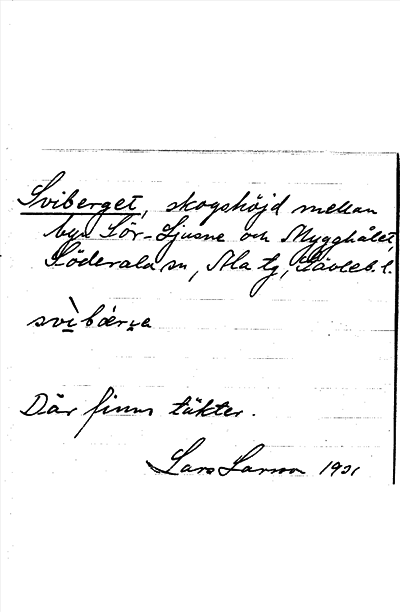 Sviberget, skogshöjd mellan
byn Sör-Ljusne och Mygghålet,
Söderala sn, Ala tg, Gävleb. l.
Där finns täkter.
Lars Larsson 1931